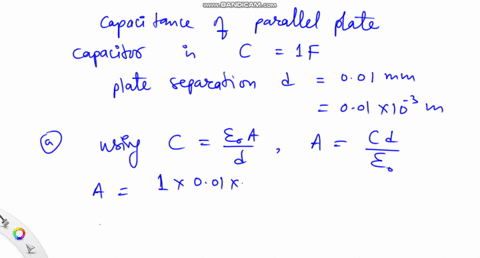 WWW.BANDICAM.COM
Capacitance of parallel plate
capacitor is C = 1F
plate separation d = 0.01 mm
= 0.01 × 10⁻³ m
(a) using C = ε₀A/d , A = Cd/ε₀
A = 1 × 0.01 ×